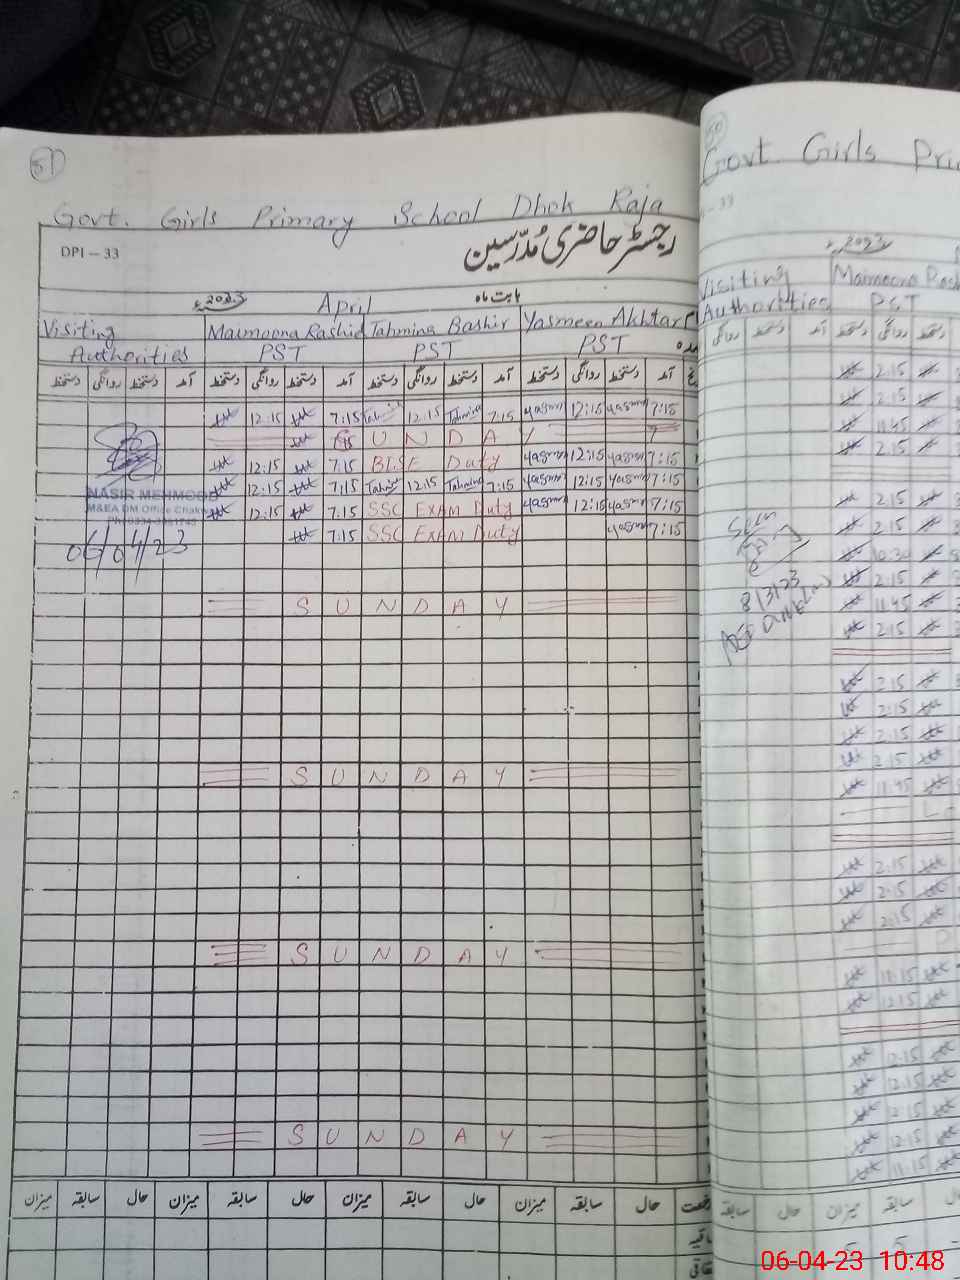 51
Govt. Girls Primary School Dhok Raja
DPI – 33
رجسٹر حاضری مُدرّسین
بابت ماہ April 2023ء
Visiting Authorities Maimoona Rashid PST Tahmina Bashir PST Yasmeen Akhtar PST
آمد دستخط روانگی دستخط آمد دستخط روانگی دستخط آمد دستخط روانگی دستخط آمد دستخط روانگی دستخط
12:15 7:15 Tahmina 12:15 Tahmina 7:15 Yasmeen 12:15 Yasmeen 7:15
SUNDAY
12:15 7:15 BISE Duty Yasmeen 12:15 Yasmeen 7:15
12:15 7:15 Tahmina 12:15 Tahmina 7:15 Yasmeen 12:15 Yasmeen 7:15
12:15 7:15 SSC EXAM Duty Yasmeen 12:15 Yasmeen 7:15
7:15 SSC EXAM Duty Yasmeen 7:15
NASIR MEHMOOD
M&EA DM Office Chakwal
06/04/23
SUNDAY
SUNDAY
SUNDAY
SUNDAY
حال سابقہ میزان حال سابقہ میزان حال سابقہ میزان حال سابقہ میزان
50
Govt. Girls Pri
– 33
2023ء
Visiting Authorities Maimoona Rash PST
دستخط روانگی دستخط آمد دستخط روانگی
2:15
2:15
11:45
2:15
2:15
2:15
10:30
2:15
11:45
2:15
Seen
8/3/23
2:15
2:15
2:15
2:15
11:45
2:15
2:15
2:15
11:15
12:15
12:15
12:15
12:15
12:15
11:15
سابقہ میزان حال سابقہ
5 5
06-04-23 10:48